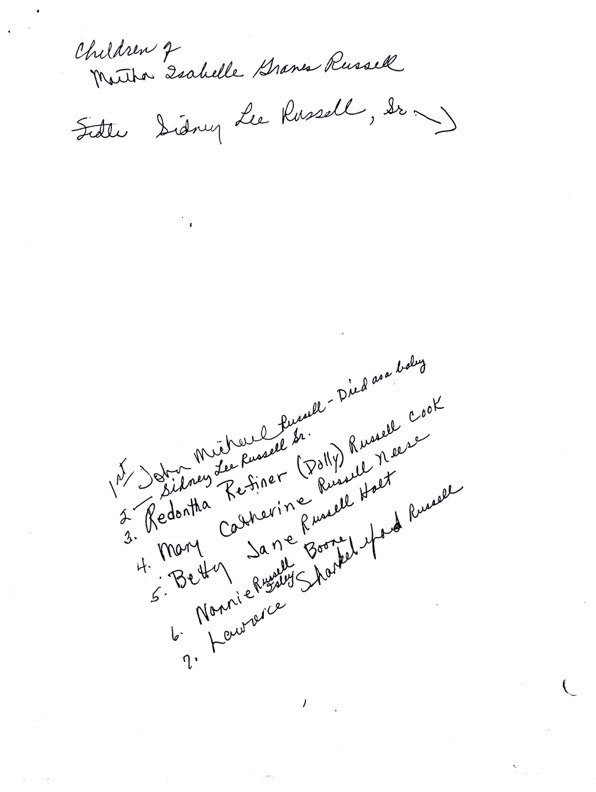 Children of
Martha Isabelle Graves Russell
Sidney Lee Russell, Sr.
1st John Michael Russell - Died as a baby
2 — Sidney Lee Russell Sr.
3. Redontha Refiner (Dolly) Russell Cook
4. Mary Catherine Russell Neese
5. Betty Jane Russell Holt
6. Nannie Russell Isley Boone
7. Lawrence Russell